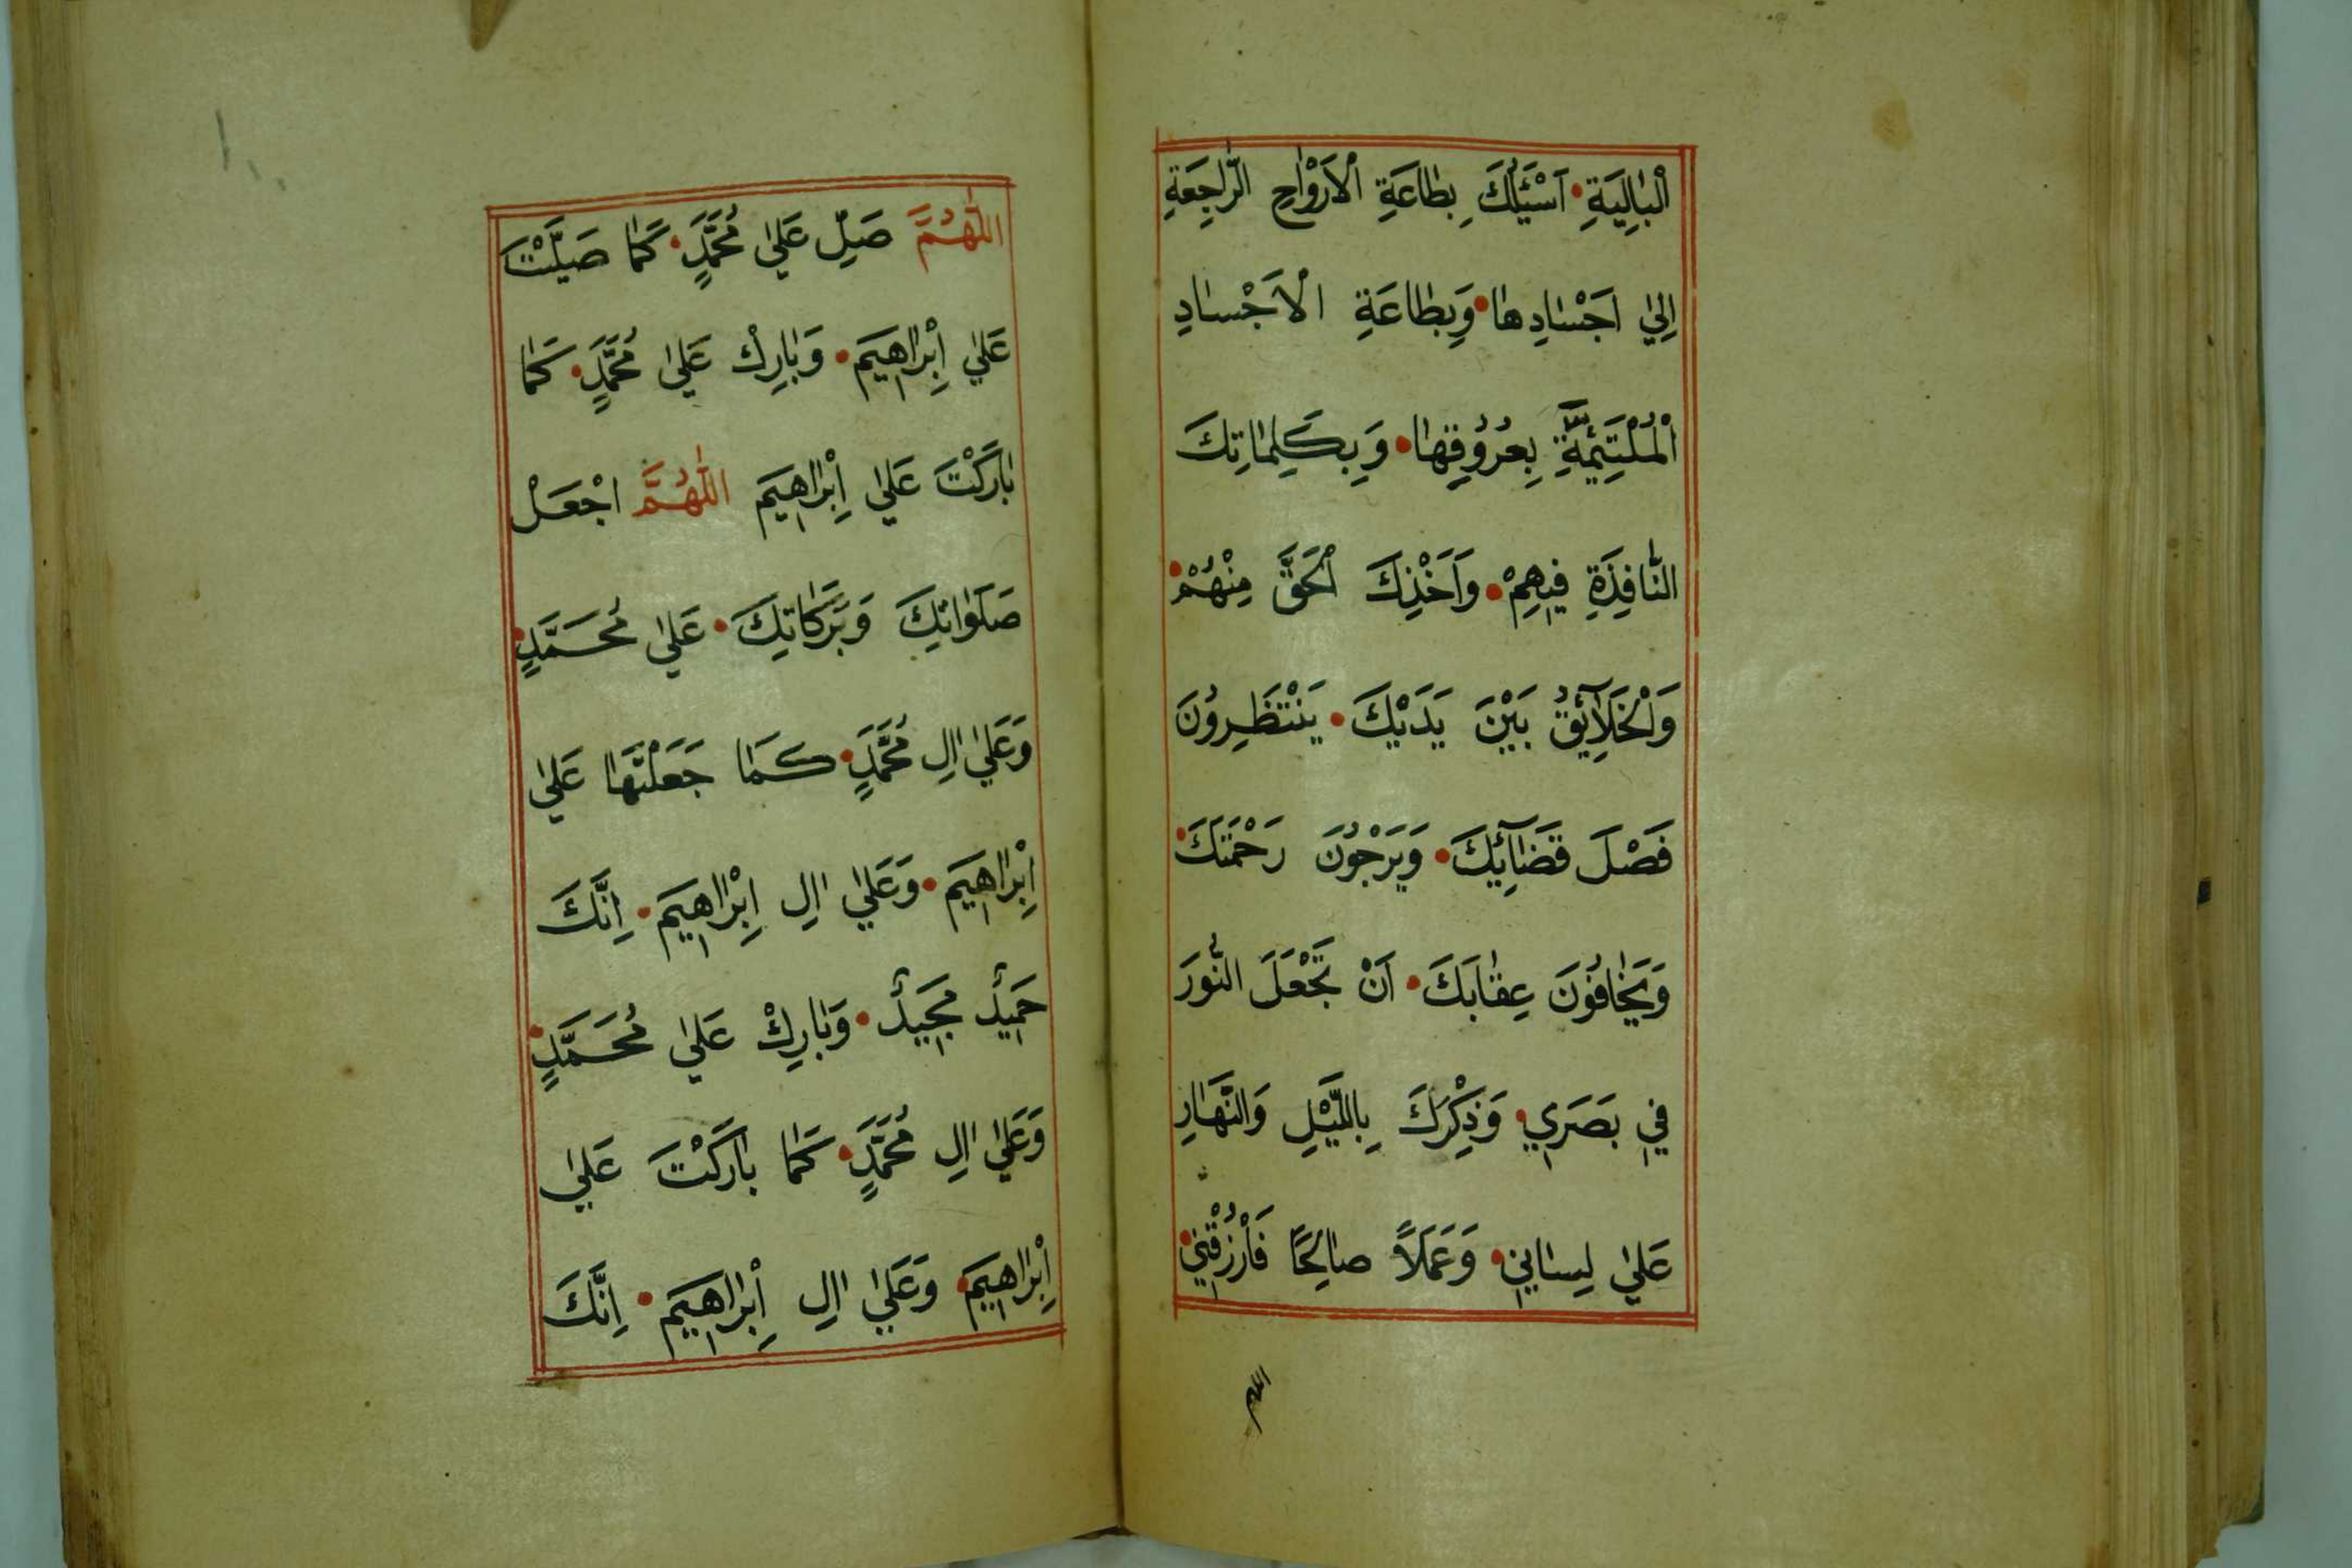 الْبَالِيَةِ • اَسْئَلُكَ بِطَاعَةِ الْاَرْوَاحِ الرَّاجِعَةِ
اِلٰي اَجْسَادِهَا • وَبِطَاعَةِ الْاَجْسَادِ
الْمُلْتَئِمَةِ بِعُرُوُقِهَا • وَبِكَلِمَاتِكَ
النَّافِذَةِ فِيهِمْ • وَاَخْذِكَ الْحَقَّ مِنْهُمْ •
وَالْخَلَآئِقُ بَيْنَ يَدَيْكَ • يَنْتَظِرُوُنَ
فَصْلَ قَضَآئِكَ • وَيَرْجُوُنَ رَحْمَتَكَ •
وَيَخَافُوُنَ عِقَابَكَ • اَنْ تَجْعَلَ النُّورَ
فِي بَصَرِي • وَذِكْرَكَ بِاللَّيْلِ وَالنَّهَارِ
عَلٰي لِسَانِي • وَعَمَلاً صَالِحًا فَارْزُقْنِي •
اللهم
اَللّٰهُمَّ صَلِّ عَلٰي مُحَمَّدٍ • كَمَا صَلَّيْتَ
عَلٰي اِبْرَاهِيمَ • وَبَارِكْ عَلٰي مُحَمَّدٍ • كَمَا
بَارَكْتَ عَلٰي اِبْرَاهِيمَ اَللّٰهُمَّ اجْعَلْ
صَلَوَاتِكَ وَبَرَكَاتِكَ • عَلٰي مُحَمَّدٍ •
وَعَلٰي اٰلِ مُحَمَّدٍ • كَمَا جَعَلْتَهَا عَلٰي
اِبْرَاهِيمَ • وَعَلٰي اٰلِ اِبْرَاهِيمَ • اِنَّكَ
حَمِيدٌ مَجِيدٌ • وَبَارِكْ عَلٰي مُحَمَّدٍ •
وَعَلٰي اٰلِ مُحَمَّدٍ • كَمَا بَارَكْتَ عَلٰي
اِبْرَاهِيمَ • وَعَلٰي اٰلِ اِبْرَاهِيمَ • اِنَّكَ